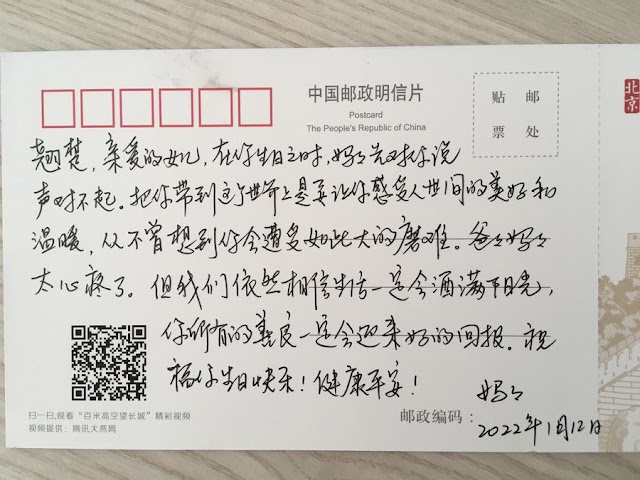 中国邮政明信片
Postcard
The People's Republic of China
贴 邮
票 处
北京
翘楚，亲爱的女儿，在你生日之时，妈妈先对你说
声对不起。把你带到这个世界上是要让你感受人世间的美好和
温暖，从不曾想到你会遭受如此大的磨难。爸爸妈妈
太心疼了。但我们依然相信生活一定会洒满阳光，
你所有的善良一定会迎来好的回报。祝
福你生日快乐！健康平安！
妈妈
2022年1月12日
扫一扫,观看“百米高空望长城”精彩视频
视频提供：腾讯大燕网
邮政编码：